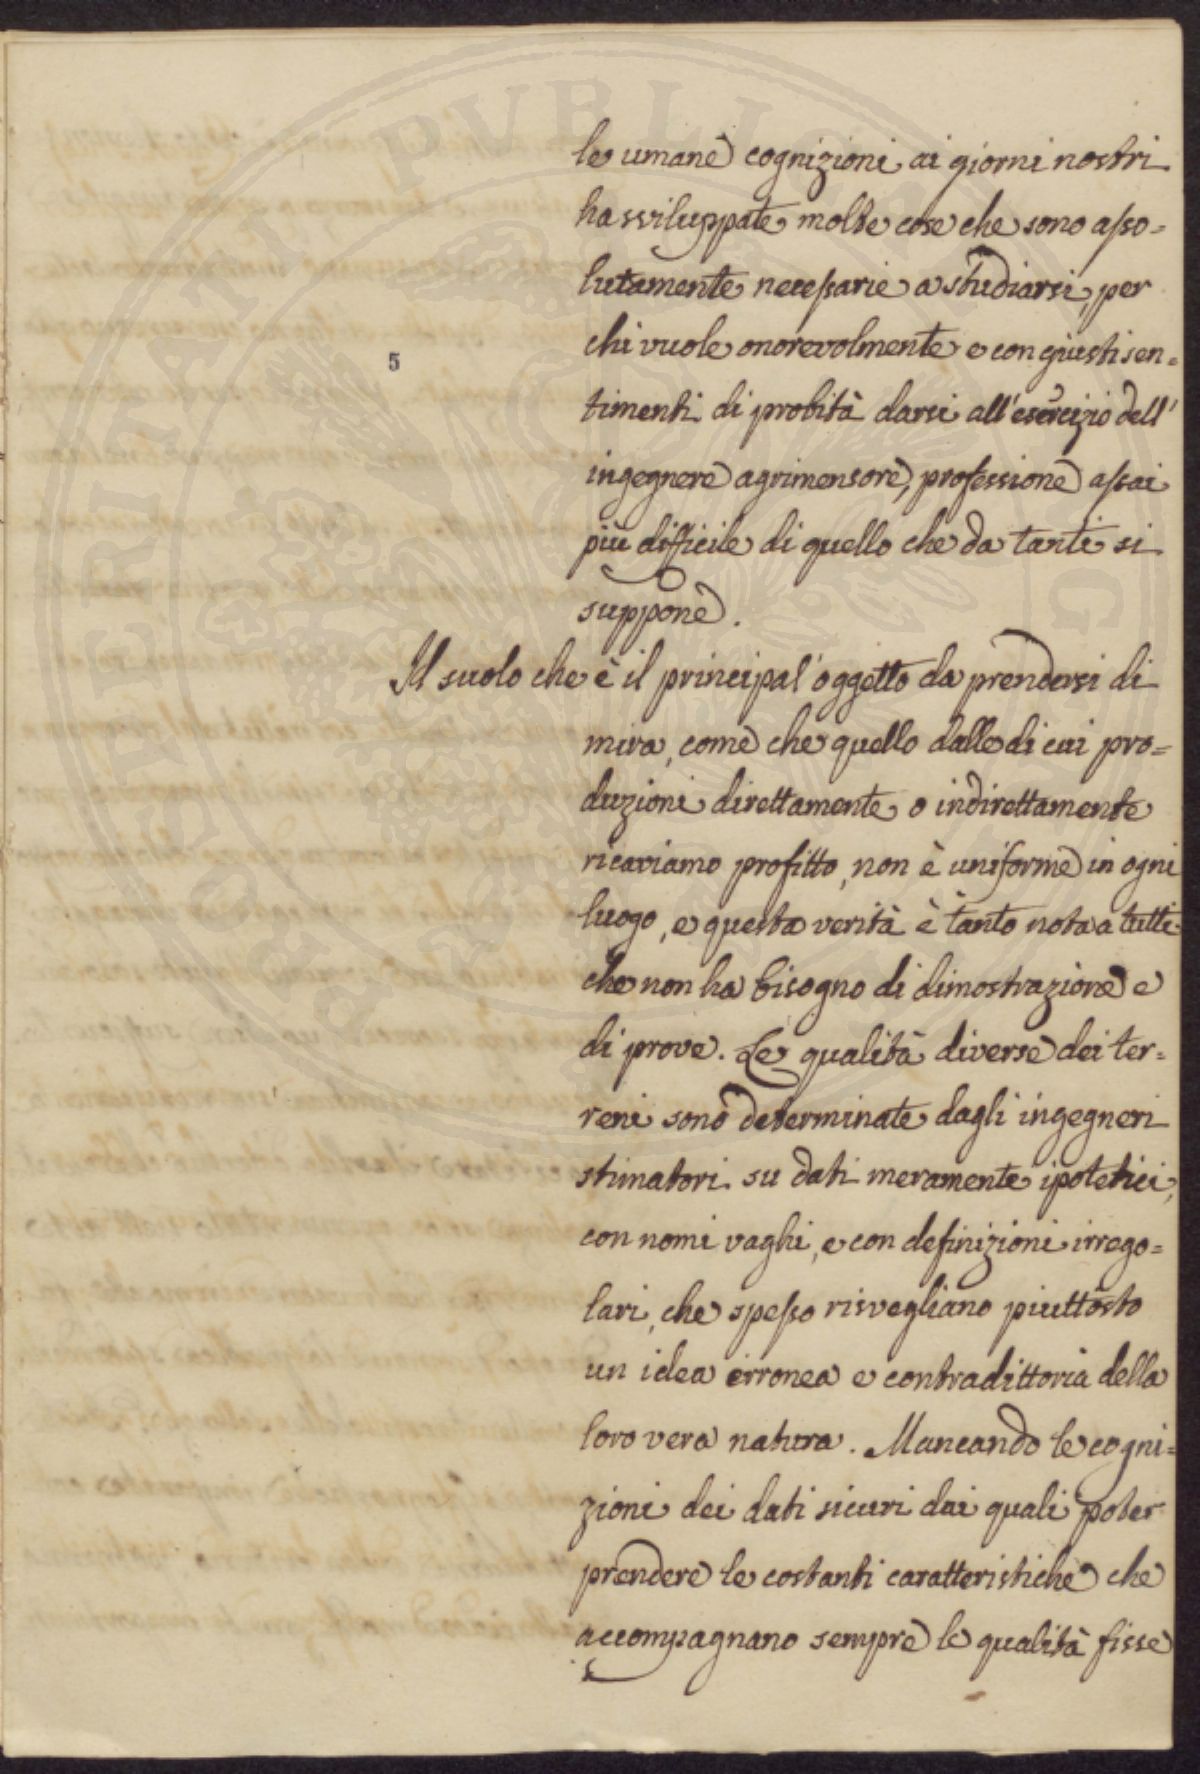 le umane cognizioni ai giorni nostri
ha sviluppate molte cose che sono asso=
lutamente necessarie a studiarsi, per
chi vuole onorevolmente e con giusti sen=
5
timenti di probità darsi all'esercizio dell'
ingegnere agrimensore, professione assai
più difficile di quello che da tanti si
suppone.
Il suolo che è il principal'oggetto da prendersi di
mira, come che quello dalle di cui pro=
duzioni direttamente o indirettamente
ricaviamo profitto, non è uniforme in ogni
luogo, e questa verità è tanto nota a tutti
che non ha bisogno di dimostrazione e
di prove. Le qualità diverse dei ter=
reni sono determinate dagli ingegneri
stimatori su dati meramente ipotetici,
con nomi vaghi, e con definizioni irrego=
lari, che spesso risvegliano piuttosto
un idea erronea e contradittoria della
loro vera natura. Mancando le cogni=
zioni dei dati sicuri dai quali poter
prendere le costanti caratteristiche che
accompagnano sempre le qualità fisse